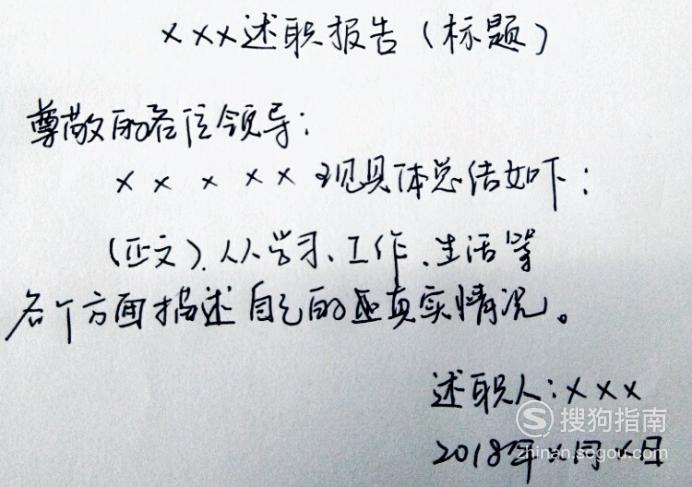 ×××述职报告（标题）
尊敬的各位领导：
× × × × × 现具体总结如下：
（正文）、从学习、工作、生活等
各个方面描述自己的真实情况。
述职人：×××
搜狗指南
2018年×月×日
zhinan.sogou.com